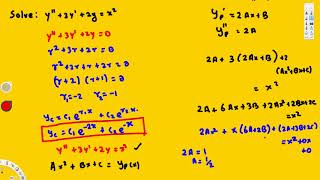 Solve: y'' + 3y' + 2y = x²
y'' + 3y' + 2y = 0
r² + 3r + 2r = 0
r² + 2r + r + 2 = 0
(r + 2) (r + 1) = 0
r₁ = -2 r₂ = -1
y_c = c₁ e^{r₁x} + c₂ e^{r₂x}
y_c = c₁ e^{-2x} + c₂ e^{-x}
y'' + 3y' + 2y = x²
Ax² + Bx + C = y_p(x)
y_p' = 2Ax + B
y_p'' = 2A
2A + 3 (2Ax + B) + 2
(Ax² + Bx + C)
= x²
2A + 6Ax + 3B + 2Ax² + 2Bx + 2C
= x²
2Ax² + x (6A + 2B) + (2A + 3B + 2C)
= x² + 0x
+ 0
2A = 1
A = 1/2